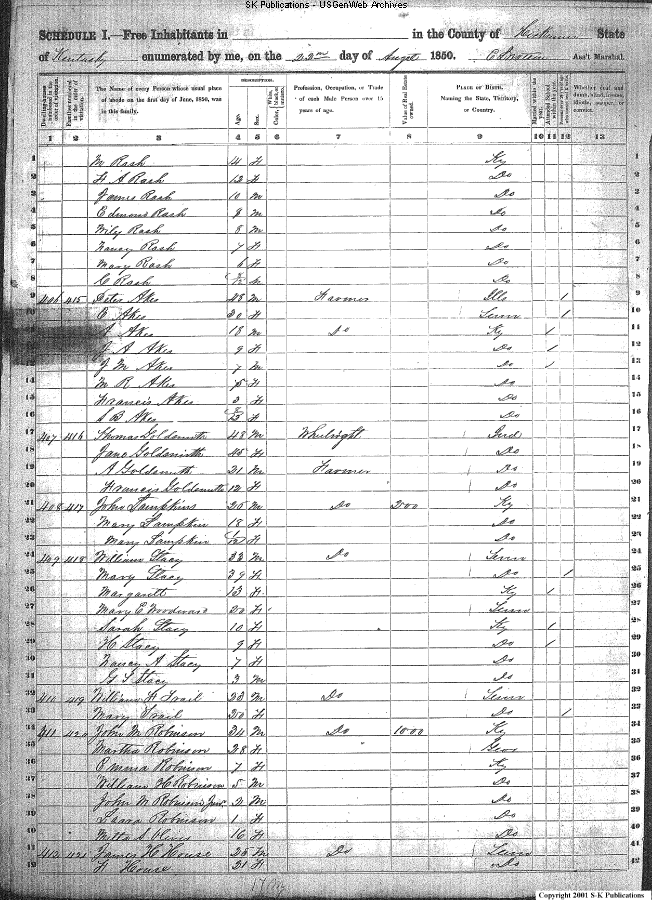 SK Publications - USGenWeb Archives
SCHEDULE I.—Free Inhabitants in in the County of Hickman State
of Kentucky enumerated by me, on the 22nd day of Augst 1850. Ass't Marshal.
Dwelling-houses numbered in the order of visitation.
Families numbered in the order of visitation.
The Name of every Person whose usual place of abode on the first day of June, 1850, was in this family.
DESCRIPTION.
Age.
Sex.
Color, White, black, or mulatto.
Profession, Occupation, or Trade of each Male Person over 15 years of age.
Value of Real Estate owned.
PLACE OF BIRTH. Naming the State, Territory, or Country.
Married within the year.
Attended School within the year.
Whether deaf and dumb, blind, insane, idiotic, pauper, or convict.
1 2 3 4 5 6 7 8 9 10 11 12 13
1 M Rash 14 F Ky 1
2 A Rash 12 F Do 2
3 James Rash 10 M Do 3
4 Edmond Rash 9 M Do 4
5 Wily Rash 8 M Do 5
6 Nancy Rash 7 F Do 6
7 Mary Rash 6 F Do 7
8 C Rash Do 8
9 406 415 Peter Akes 48 M Farmer Ills 1 9
10 E Akes 30 F Tenn 1 10
11 Akes 18 M Do Ky 1 11
12 A Akes 9 F Do 1 12
13 J M Akes 7 M Do 1 13
14 M R Akes 5 F Do 14
15 Francis Akes 3 F Do 15
16 S B Akes F Do 16
17 407 416 Thomas Goldsmith 48 M Whelright Ind 17
18 Jane Goldsmith 45 F Do 18
19 A Goldsmith 21 M Farmer Do 19
20 Francis Goldsmith 12 F Do 20
21 408 417 John Lampkins 25 M Do 200 Ky 21
22 Mary Lampkin 18 F Do 22
23 Mary Lampkin F Do 23
24 409 418 William Stacy 33 M Do Tenn 24
25 Mary Stacy 39 F Do 1 25
26 Margarett 13 F Ky 1 26
27 Mary E Woodward 20 F Tenn 27
28 Sarah Stacy 10 F Ky 1 28
29 H Stacy 9 F Do 1 29
30 Nancy A Stacy 7 F Do 30
31 G S Stacy 3 M Do 31
32 410 419 William H Trail 23 M Do Tenn 32
33 Mary Trail 20 F Do 1 33
34 411 420 John M Robinson 34 M Do 1000 Ky 34
35 Martha Robinson 28 F Geo 35
36 Emma Robinson 7 F Ky 36
37 William H Robinson 5 M Do 37
38 John M Robinson Junr 2 M Do 38
39 Laura Robinson 1 F Do 39
40 16 F Do 40
41 412 421 James H House 25 M Do Tenn 41
42 House 21 F Do 42
Copyright 2001 S-K Publications